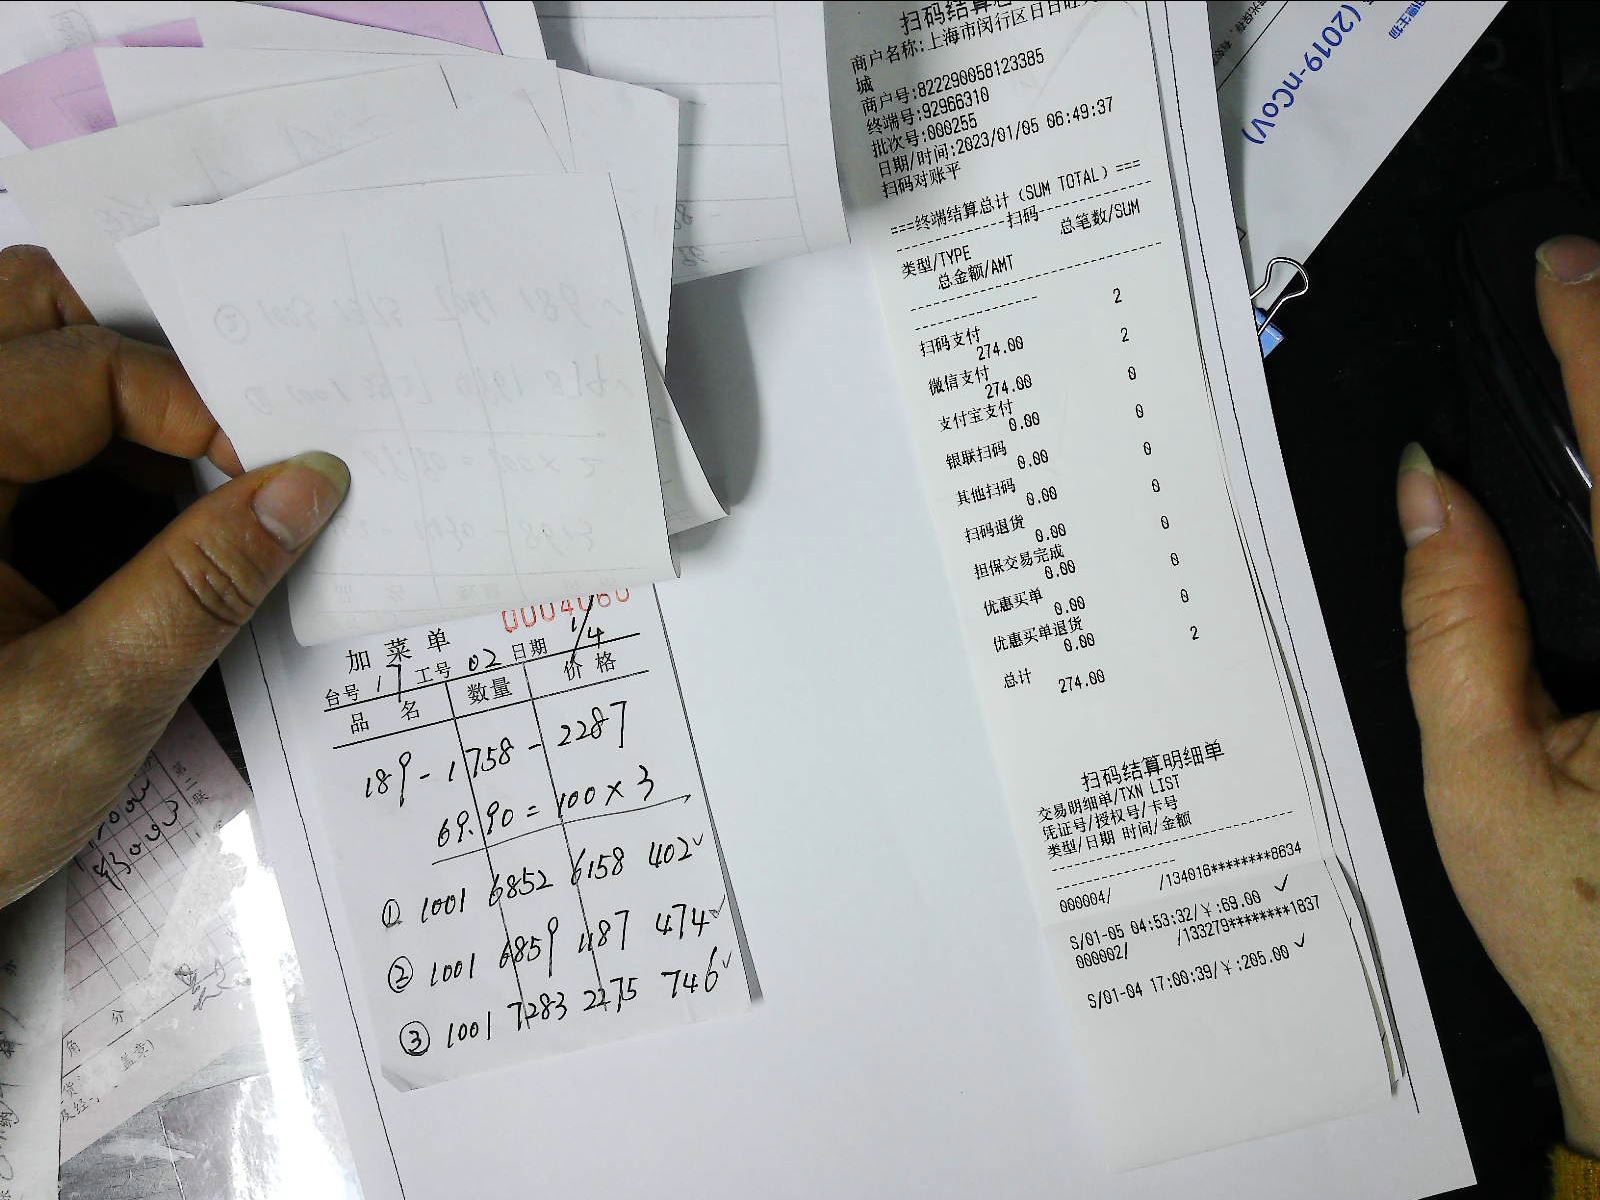 扫码结算总
商户名称:上海市闵行区日日旺
城
商户号:822290058123385
终端号:92966310
批次号:000255
日期/时间:2023/01/05 06:49:37
扫码对账平
===终端结算总计(SUM TOTAL)===
扫码
类型/TYPE 总笔数/SUM
总金额/AMT
扫码支付 2
274.00
微信支付 2
274.00
支付宝支付 0
0.00
银联扫码 0
0.00
其他扫码 0
0.00
扫码退货 0
0.00
担保交易完成 0
0.00
优惠买单 0
0.00
优惠买单退货 0
0.00
总计 2
274.00
扫码结算明细单
交易明细单/TXN LIST
凭证号/授权号/卡号
类型/日期 时间/金额
000004/ /134016********8634
S/01-05 04:53:32/¥:69.00 ✓
000002/ /133279********1837
S/01-04 17:00:39/¥:205.00 ✓
0004060
加菜单
台号 17 工号 02 日期 1/4
品名 数量 价格
189-1758-2287
69.90=100×3
① 1001 6852 6158 402✓
② 1001 6859 1187 474✓
③ 1001 7283 2275 746✓
(2019-nCoV)
第二联
角 分
盖章)